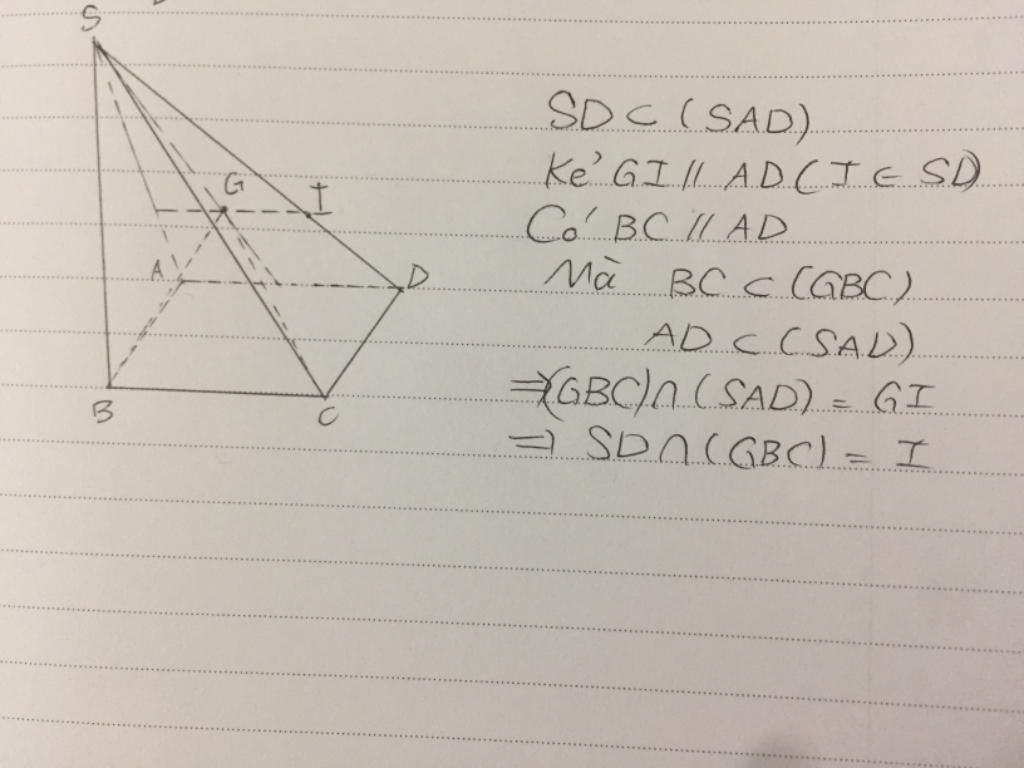 S
G
I
A
D
B
C
SD ⊂ (SAD)
Kẻ GI // AD (I ∈ SD)
Có BC // AD
Mà BC ⊂ (GBC)
AD ⊂ (SAD)
⇒ (GBC) ∩ (SAD) = GI
⇒ SD ∩ (GBC) = I